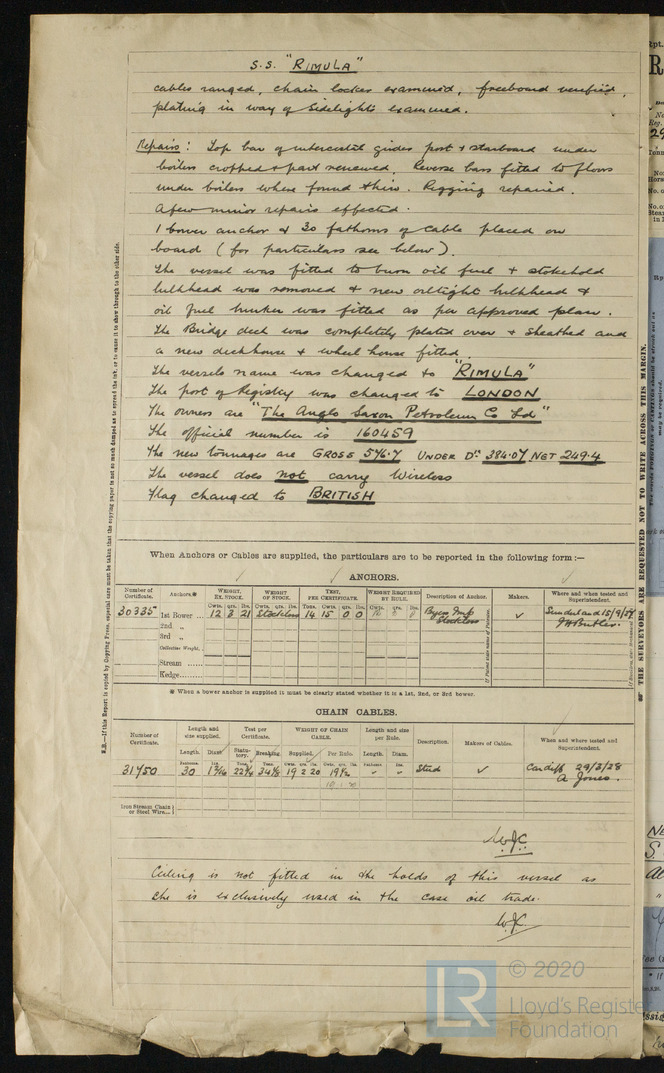 S.S. "RIMULA"
cables ranged, chain locker examined, freeboard verified,
plating in way of sidelights examined.
Repairs: Top bar of intercostal girders port & starboard under
boilers cropped & part renewed. Reverse bars fitted to floors
under boilers where found thin. Rigging repaired.
A few minor repairs effected.
1 bower anchor & 30 fathoms of cable placed on
board (for particulars see below).
The vessel was fitted to burn oil fuel & stokehold
bulkhead was removed & new oiltight bulkhead &
oil fuel bunker was fitted as per approved plan.
The Bridge deck was completely plated over & sheathed and
a new deckhouse & wheel house fitted.
The vessels name was changed to "RIMULA"
The port of Registry was changed to LONDON
The owners are "The Anglo Saxon Petroleum Co Ld"
The official number is 160459
The new tonnages are GROSS 546.7 UNDER DK 384.07 NET 249.4
The vessel does not carry Wireless
Flag changed to BRITISH
When Anchors or Cables are supplied, the particulars are to be reported in the following form:—
ANCHORS.
Number of Certificate. Anchors.* WEIGHT, EX. STOCK. WEIGHT OF STOCK. TEST, PER CERTIFICATE. WEIGHT REQUIRED BY RULE. Description of Anchor. Makers. Where and when tested and Superintendent.
Cwts. qrs. lbs. Cwts. qrs. lbs. Tons. Cwts. qrs. lbs. Cwts. qrs. lbs.
30335 1st Bower 12 3 21 Stockless 14 15 0 0 Byers Stockless Sunderland 15/9/27
2nd „
3rd „
Collective Weight.
Stream
Kedge
* When a bower anchor is supplied it must be clearly stated whether it is a 1st, 2nd, or 3rd bower.
CHAIN CABLES.
Number of Certificate. Length and size supplied. Test per Certificate. WEIGHT OF CHAIN CABLE. Length and size per Rule. Description. Makers of Cables. When and where tested and Superintendent.
Length. Diam. Statutory. Breaking. Supplied. Per Rule. Length. Diam.
31450 30 1 3/16 19 2 20 19½ Stud Cardiff 29/3/28
A Jones.
Iron Stream Chain or Steel Wire...
W.K.
Ceiling is not fitted in the holds of this vessel as
she is exclusively used in the case oil trade.
W.K.
N.B.—If this Report is copied by Copying Press, especial care must be taken that the copying paper is not so much damped as to spread the ink, or to cause it to show through to the other side.
THE SURVEYORS ARE REQUESTED NOT TO WRITE ACROSS THIS MARGIN.
LR
© 2020
Lloyd's Register
Foundation